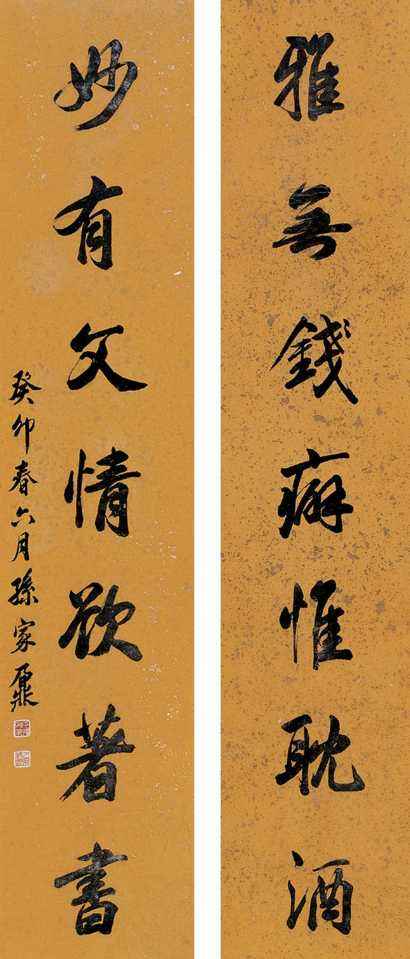 雅無錢癖惟耽酒
妙有文情欲著書
癸卯春六月孫家鼐